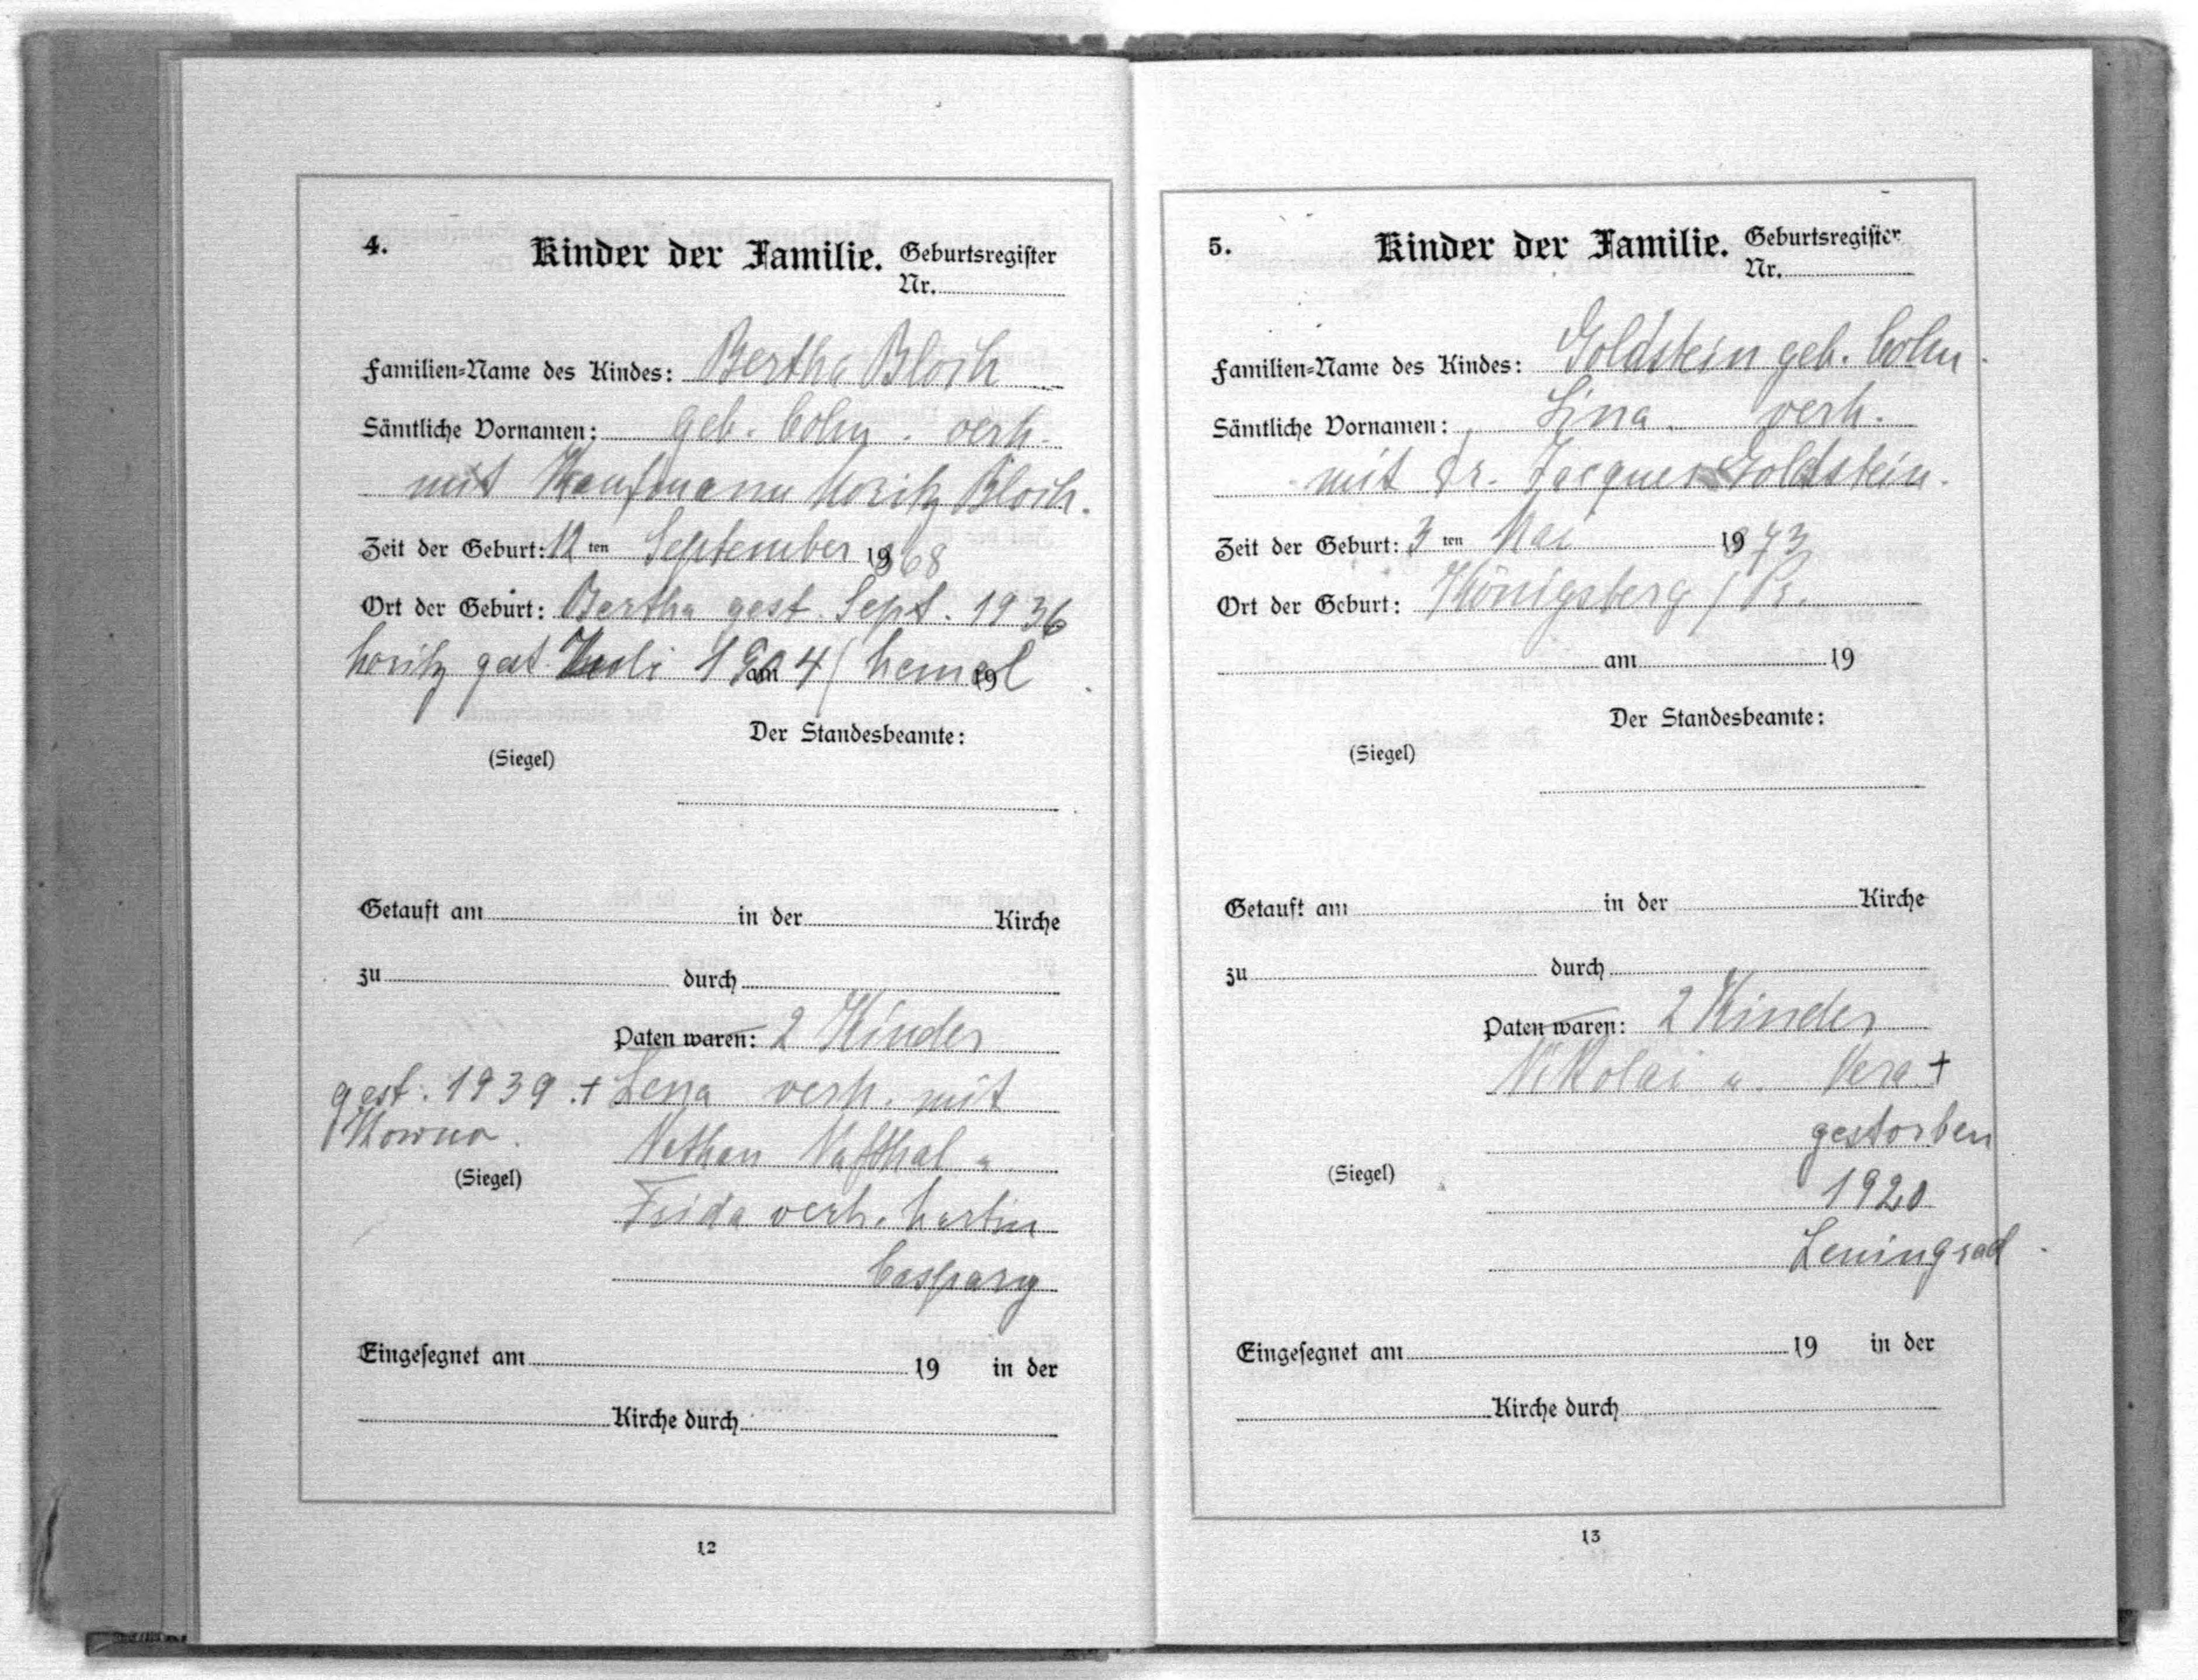 4. Kinder der Familie. Geburtsregister
Nr.
Familien-Name des Kindes: Bertha Bloch
Sämtliche Vornamen: geb. Cohn. verh.
mit Kaufmann Moritz Bloch.
Zeit der Geburt: 12 ten September 1868
Ort der Geburt: Bertha gest. Sept. 1936
Moritz gest. Juli 1904 / Memel am 19
Der Standesbeamte:
(Siegel)
Getauft am in der Kirche
zu durch
Paten waren: 2 Kinder
gest. 1939 + Lena verh. mit
Kowno.
Nathan Nafthal u.
(Siegel)
Frida verh. Martin
Caspary
Eingesegnet am 19 in der
Kirche durch
12
5. Kinder der Familie. Geburtsregister
Nr.
Familien-Name des Kindes: Goldstein geb. Cohn.
Sämtliche Vornamen: Lina verh.
mit Dr. Jacques Goldstein.
Zeit der Geburt: 3 ten Mai 1873
Ort der Geburt: Königsberg / Pr.
am 19
Der Standesbeamte:
(Siegel)
Getauft am in der Kirche
zu durch
Paten waren: 2 Kinder
Nikolai u. Vera +
gestorben
(Siegel)
1920
Leningrad.
Eingesegnet am 19 in der
Kirche durch
13